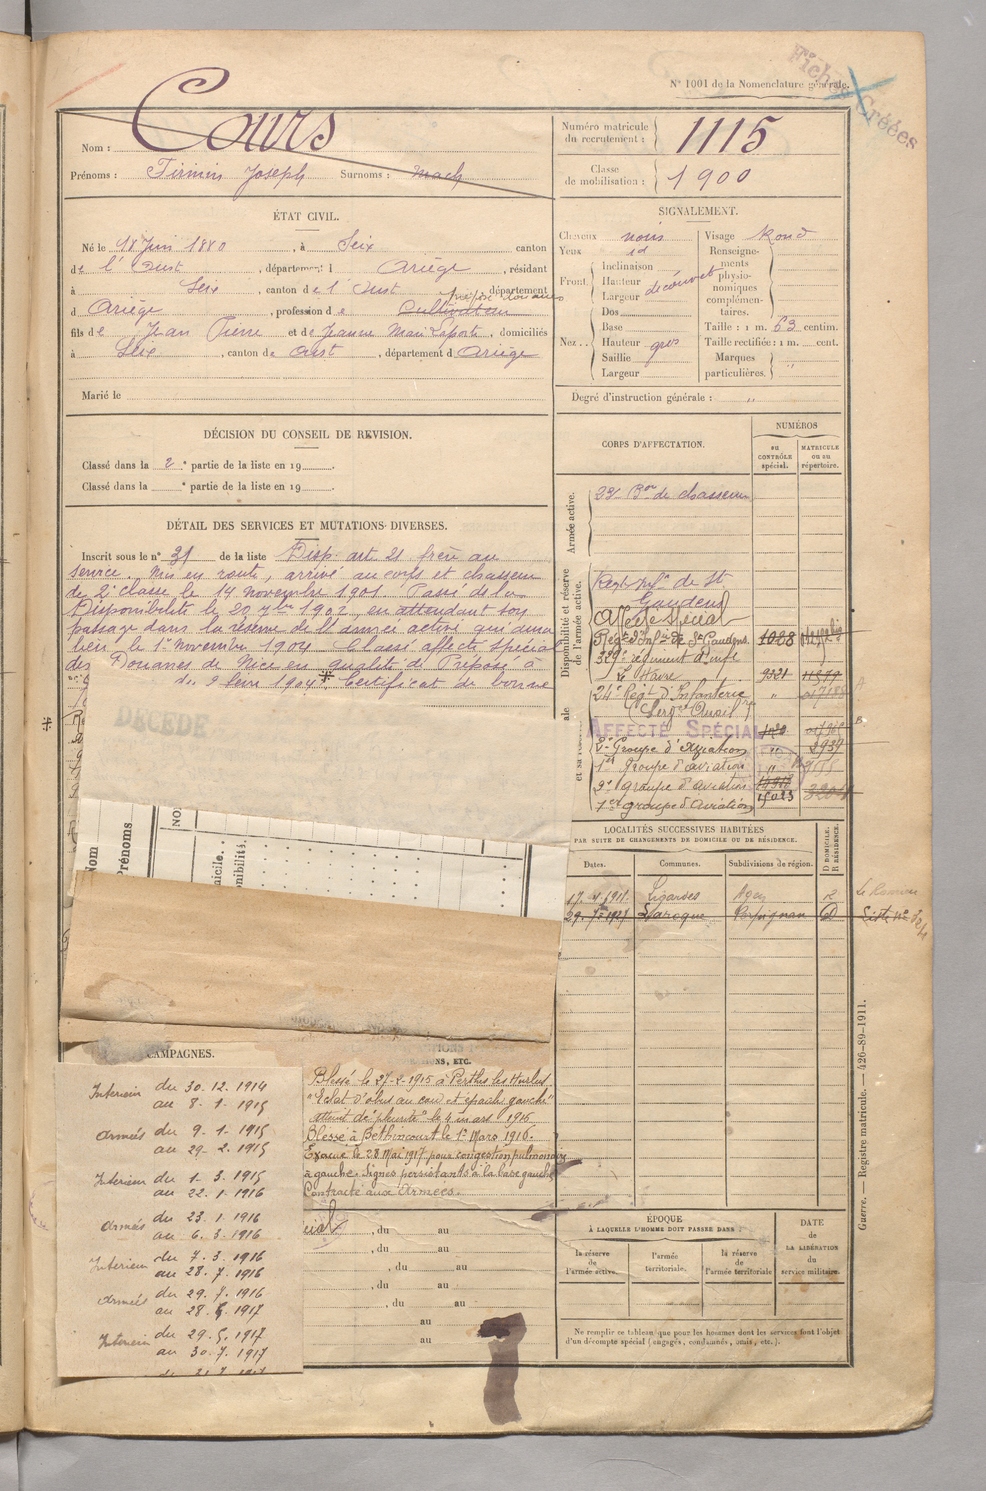 Fiches Créées
N° 1001 de la Nomenclature générale.
Nom : Cours
Prénoms : Firmin Joseph Surnoms :
Numéro matricule du recrutement : 1115
Classe de mobilisation : 1900
ÉTAT CIVIL.
Né le 18 Juin 1880, à Seix canton
de l'Oust, département d Ariège, résidant
à Seix, canton de l'Oust, département
préposé douanes
d Ariège, profession de Cultivateur
fils de Jean Pierre et de Jeanne Marie Laporte, domiciliés
à Seix, canton de Oust, département d Ariège
Marié le
SIGNALEMENT.
Cheveux noirs
Yeux id
Front. Inclinaison
Hauteur découvert
Largeur
Nez. Dos
Base
Hauteur gros
Saillie
Largeur
Visage Rond
Renseignements physionomiques complémentaires.
Taille : 1 m. 63 centim.
Taille rectifiée : 1 m. cent.
Marques particulières. "
Degré d'instruction générale : "
DÉCISION DU CONSEIL DE REVISION.
Classé dans la 2e partie de la liste en 19
Classé dans la e partie de la liste en 19
DÉTAIL DES SERVICES ET MUTATIONS DIVERSES.
Inscrit sous le n° 31 de la liste Disp. art 21 frère au
service. Mis en route, arrivé au corps et chasseur
de 2e classe le 14 novembre 1901. Passé dans la
Disponibilité le 20 7bre 1902, en attendant son
passage dans la réserve de l'armée active qui aura
lieu le 1er Novembre 1904. Classé affecté spécial
des Douanes de Nice en qualité de Préposé à
1904. Certificat de bonne
DÉCÉDÉ
Nom
Prénoms
NO
CORPS D'AFFECTATION.
NUMÉROS
au CONTRÔLE spécial.
MATRICULE ou au répertoire.
Armée active.
23e Bon de chasseurs
Disponibilité et réserve de l'armée active.
Régt Infie de St Gaudens
Affecté Spécial
Régt d'Infie de St Gaudens 1088
329e régiment d'infie
Le Havre 9321 11579
24e Régt d'Infanterie "
AFFECTÉ SPÉCIAL
2e Groupe d'Aviation " 2937
1er Groupe d'aviation "
3e groupe d'aviation
1er groupe d'Aviation 15023
LOCALITÉS SUCCESSIVES HABITÉES
PAR SUITE DE CHANGEMENTS DE DOMICILE OU DE RÉSIDENCE.
Dates. Communes. Subdivisions de région. D DOMICILE. R RÉSIDENCE.
Ligardes Agen
Perpignan D
CAMPAGNES.
NS, ETC.
Intérieur du 30. 12. 1914
au 8. 1. 1915
Armées du 9. 1. 1915
au 29. 2. 1915
Intérieur du 1. 3. 1915
au 22. 1. 1916
Armées du 23. 1. 1916
au 6. 3. 1916
Intérieur du 7. 3. 1916
au 28. 7. 1916
Armées du 29. 7. 1916
au 28. 5. 1917
Intérieur du 29. 5. 1917
au 30. 7. 1917
Blessé le 27-2-1915 à Perthes les Hurlus
"Eclat d'obus au cou et épaule gauche"
atteint de "pleurite" le 4 mars 1915
Blessé à Béthincourt le 1er Mars 1916.
Evacué le 28 Mai 1917 pour congestion pulmonaire
à gauche. Signes persistants à la base gauche
Contracté aux Armées.
cial, du au
, du au
, du au
, du au
, du au
au
au
ÉPOQUE
À LAQUELLE L'HOMME DOIT PASSER DANS :
la réserve de l'armée active.
l'armée territoriale.
la réserve de l'armée territoriale
DATE DE LA LIBÉRATION du service militaire.
Ne remplir ce tableau que pour les hommes dont les services font l'objet
d'un décompte spécial (engagés, condamnés, omis, etc.).
Guerre. — Registre matricule. — 426-89-1911.